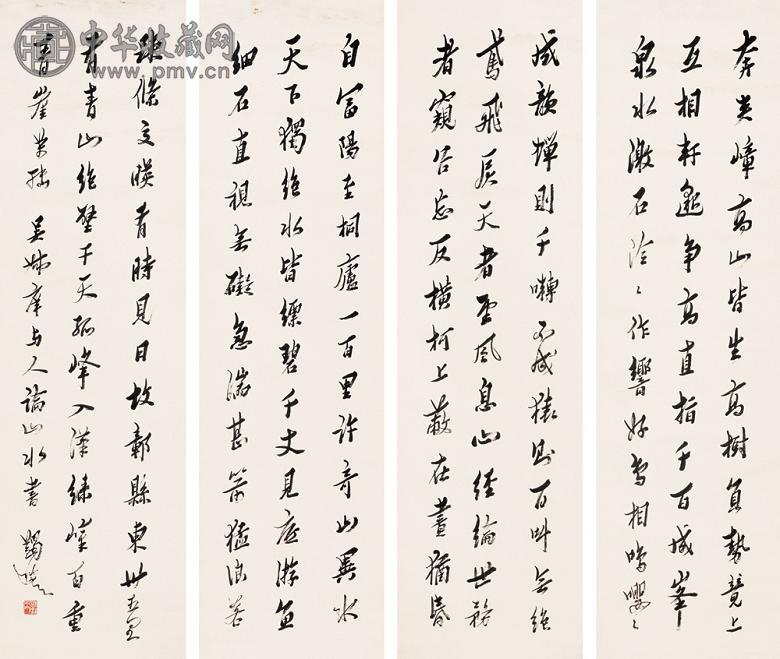 中华收藏网
www.pmv.cn
奔夾嶂高山皆生高樹負勢競上
互相軒邈爭高直指千百成峯
泉水激石泠〻作響好鳥相鳴嚶〻
成韻蟬則千囀不成猿則百叫無絕
鳶飛戾天者望風息心經綸世務
者窺谷忘反橫柯上蔽在晝猶昏
自富陽至桐廬一百里許奇山異水
天下獨絕水皆縹碧千丈見底游魚
細石直視無礙急湍甚箭猛浪若
疎條交映有時見日故鄣縣東卅五里
有青山絕壁干天孤峰入漢綠嶂百重
青崖萬轉 吳叔庠与人論山水書